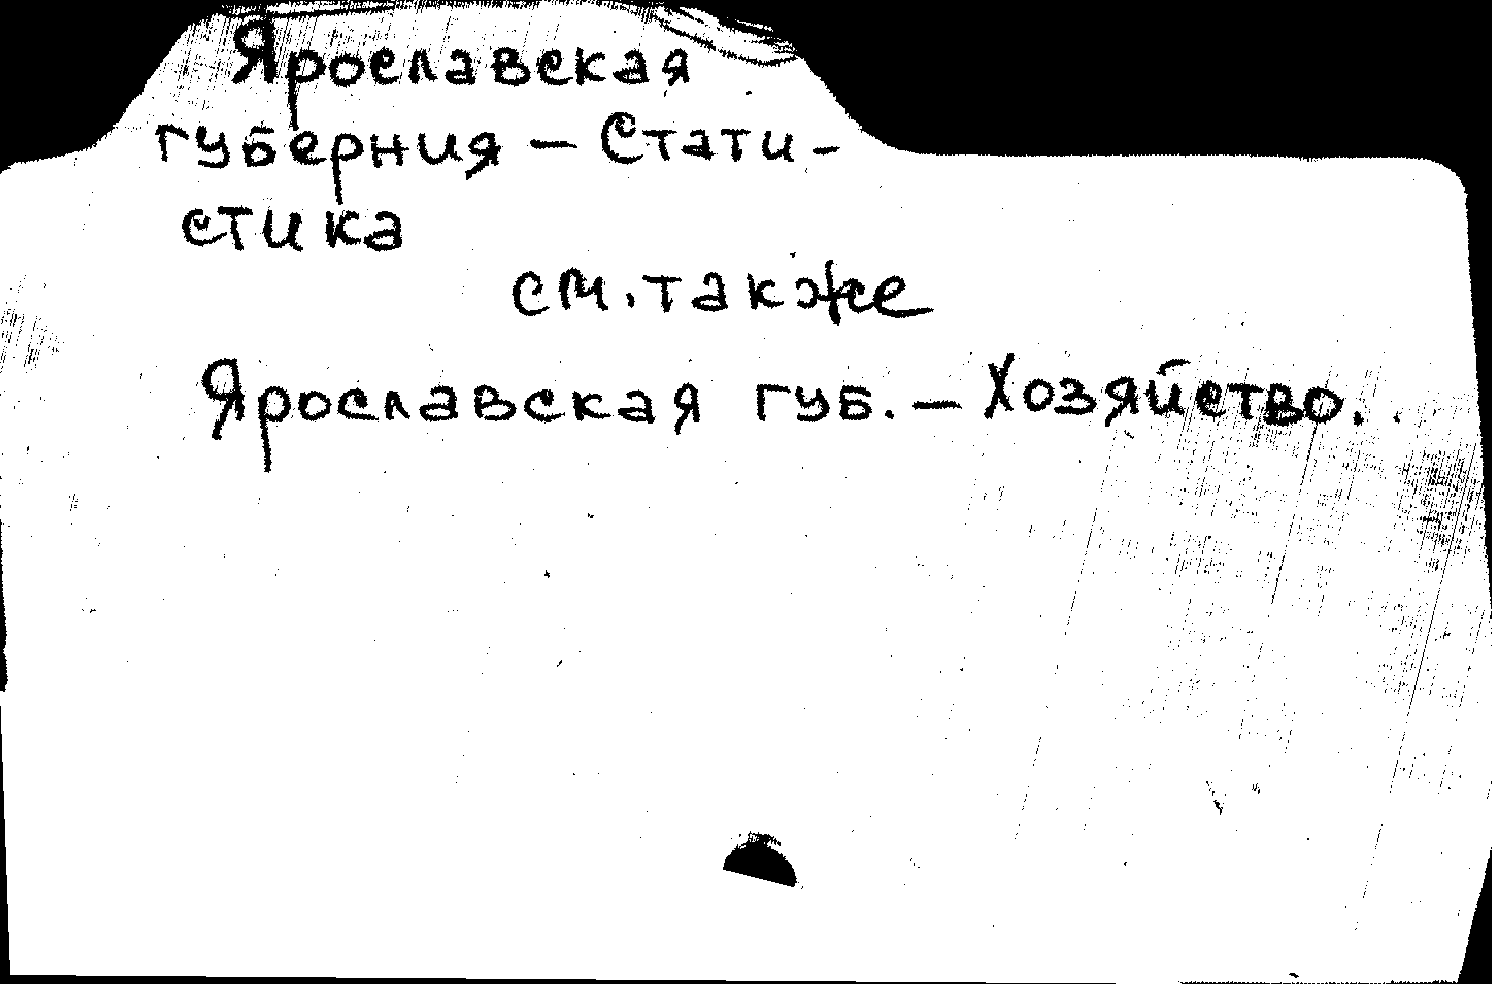 Ярославская
губерния — Стати-
стика
см. также
Ярославская губ. — Хозяйство.